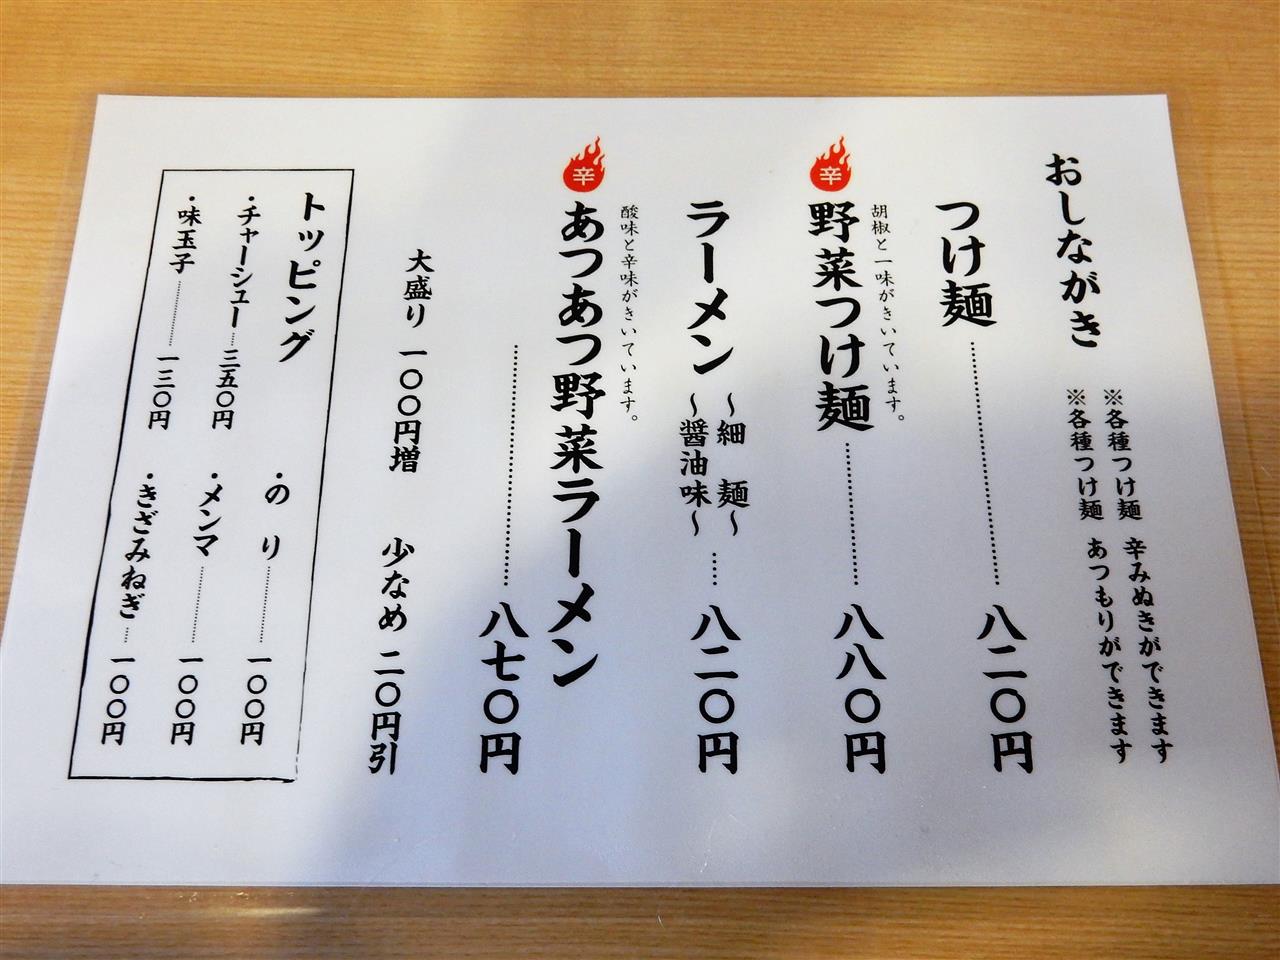 おしながき
※各種つけ麺 辛みぬきができます
※各種つけ麺 あつもりができます
つけ麺……八二〇円
胡椒と一味がきいています。
辛
野菜つけ麺……八八〇円
ラーメン 〜細 麺〜
〜醤油味〜……八二〇円
酸味と辛味がきいています。
辛
あつあつ野菜ラーメン
……八七〇円
大盛り 一〇〇円増 少なめ 二〇円引
トッピング
・のり……一〇〇円
・チャーシュー…三五〇円
・メンマ……一〇〇円
・味玉子……一三〇円
・きざみねぎ…一〇〇円